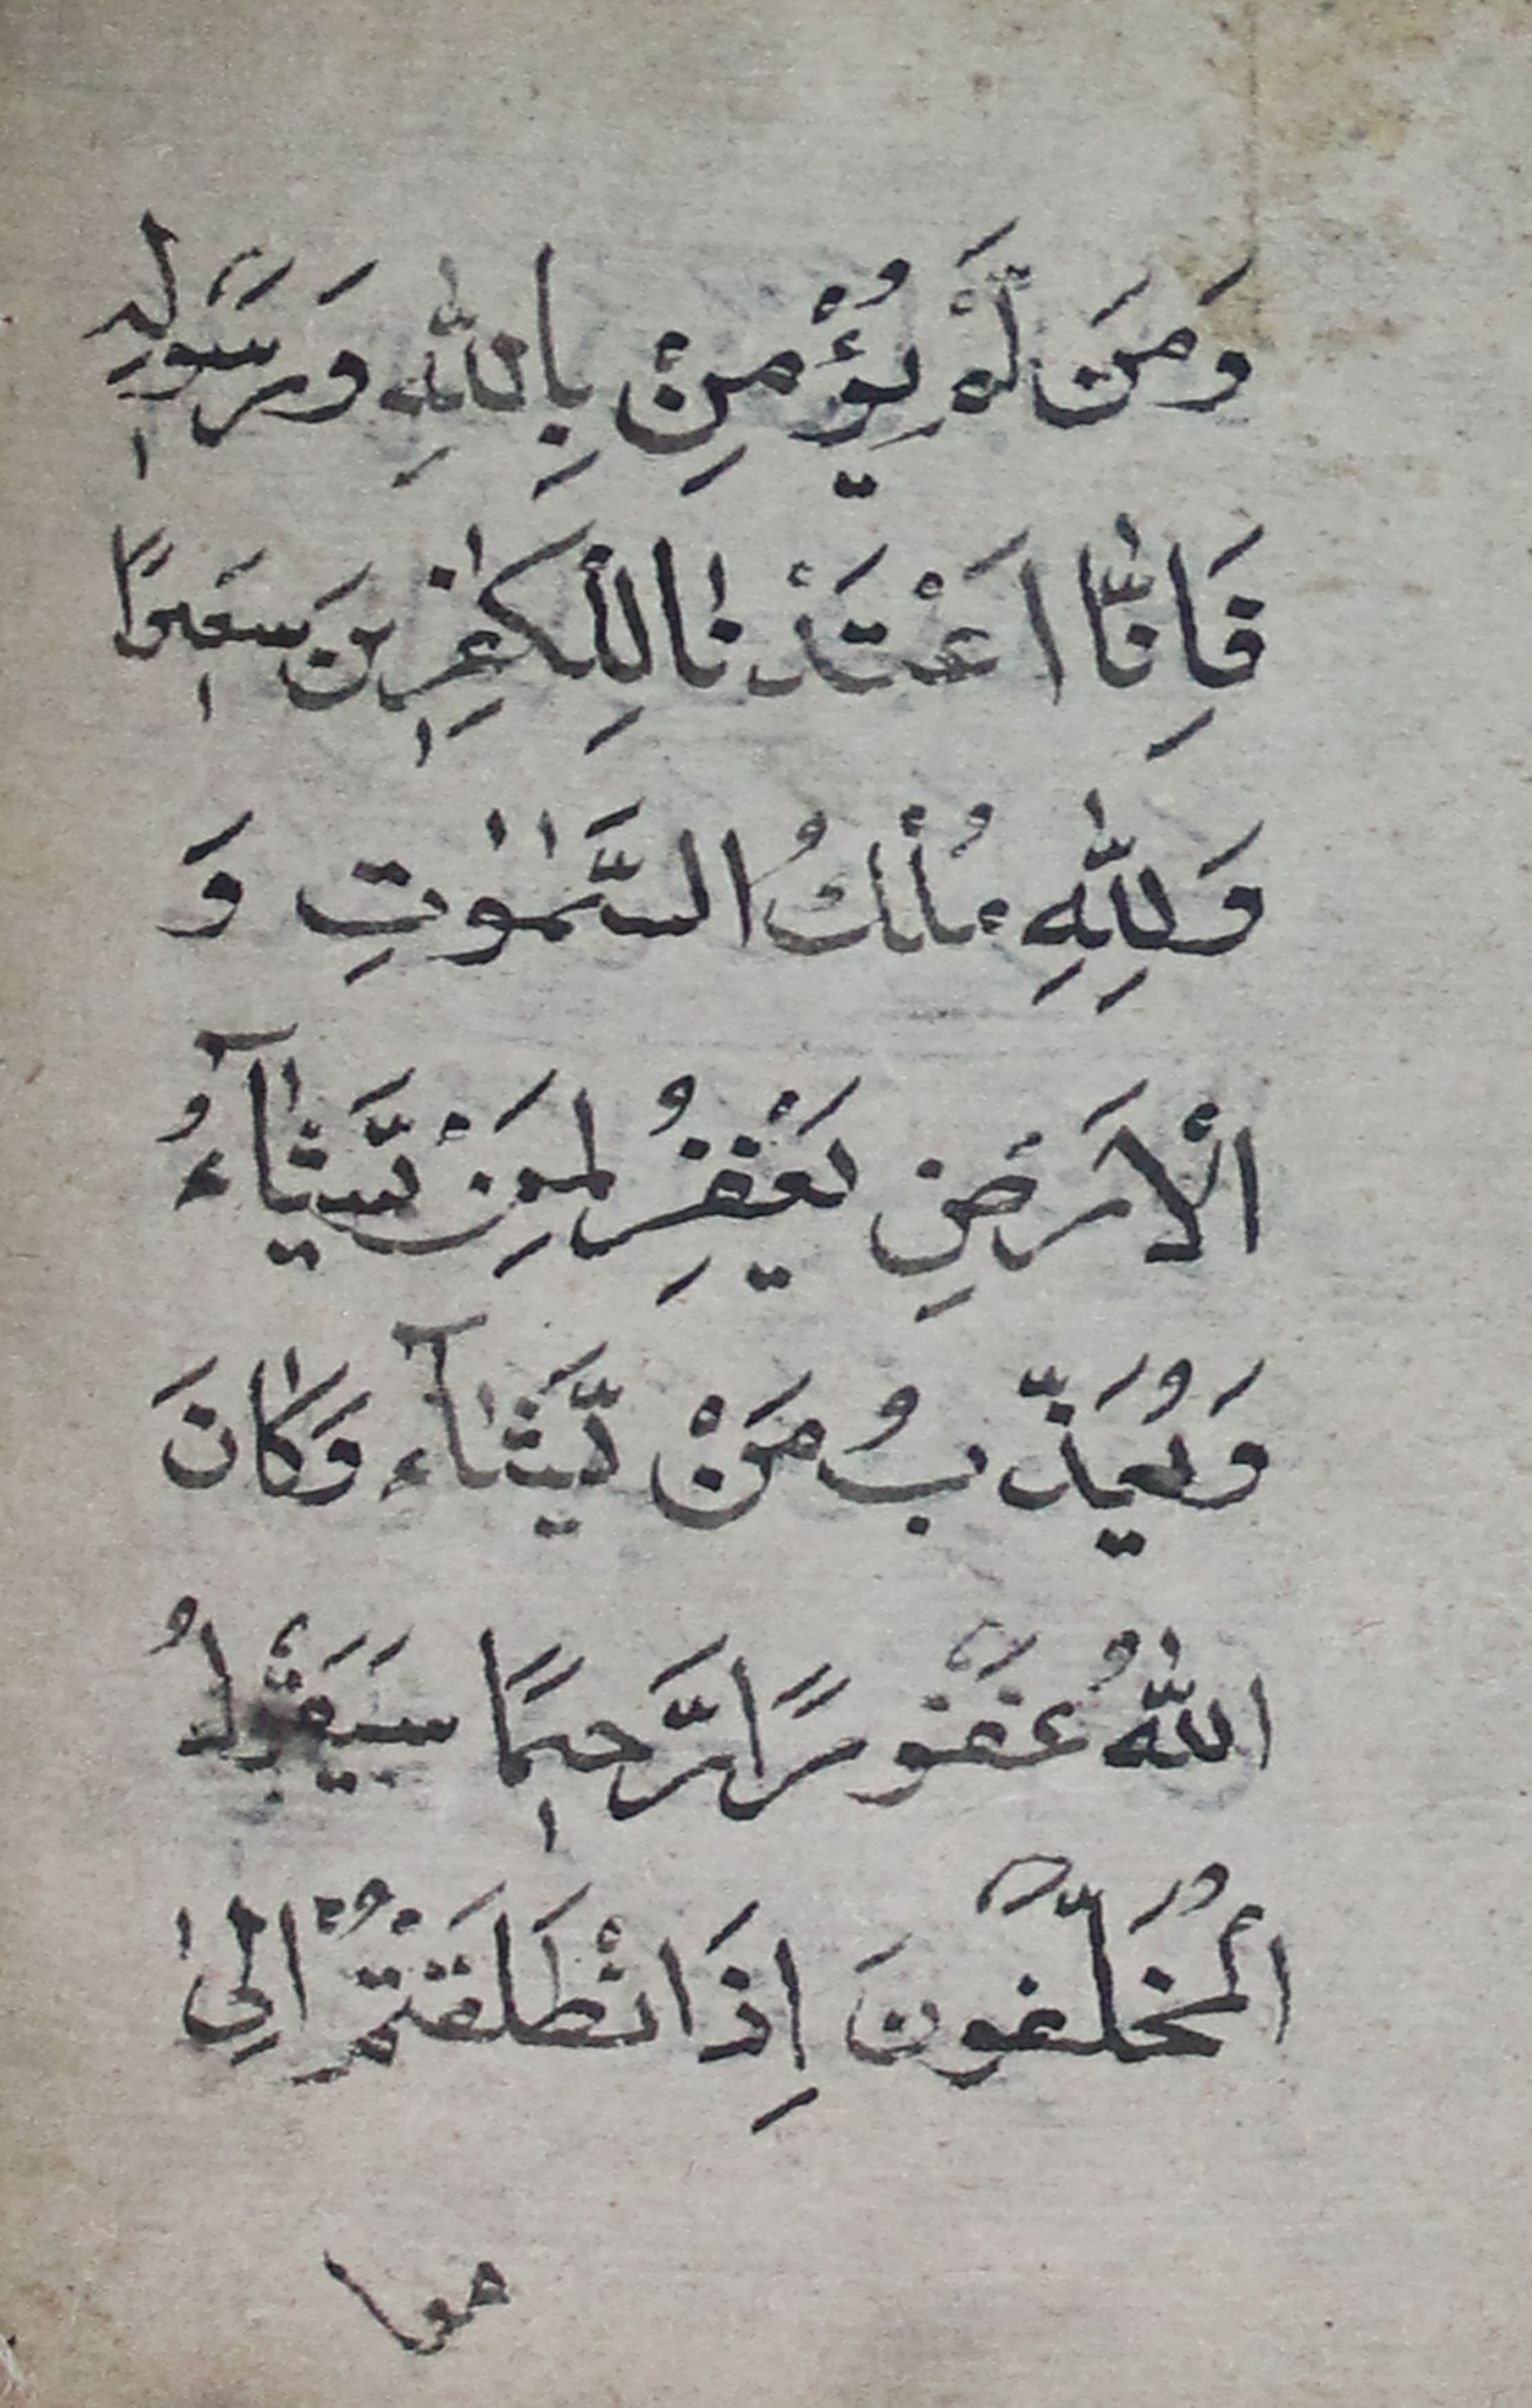 وَمَن لَّمْ يُؤْمِنْ بِاللّٰهِ وَرَسُولِهٖ
فَاِنَّا اَعْتَدْنَا لِلْكٰفِرِيْنَ سَعِيْرًا
وَلِلّٰهِ مُلْكُ السَّمٰوٰتِ وَ
الْاَرْضِ يَغْفِرُ لِمَنْ يَّشَآءُ
وَيُعَذِّبُ مَنْ يَّشَآء وَكَانَ
اللّٰهُ غَفُوْرًا رَّحِيْمًا سَيَقُوْلُ
الْمُخَلَّفُوْنَ اِذَا انْطَلَقْتُمْ اِلٰى
مغا